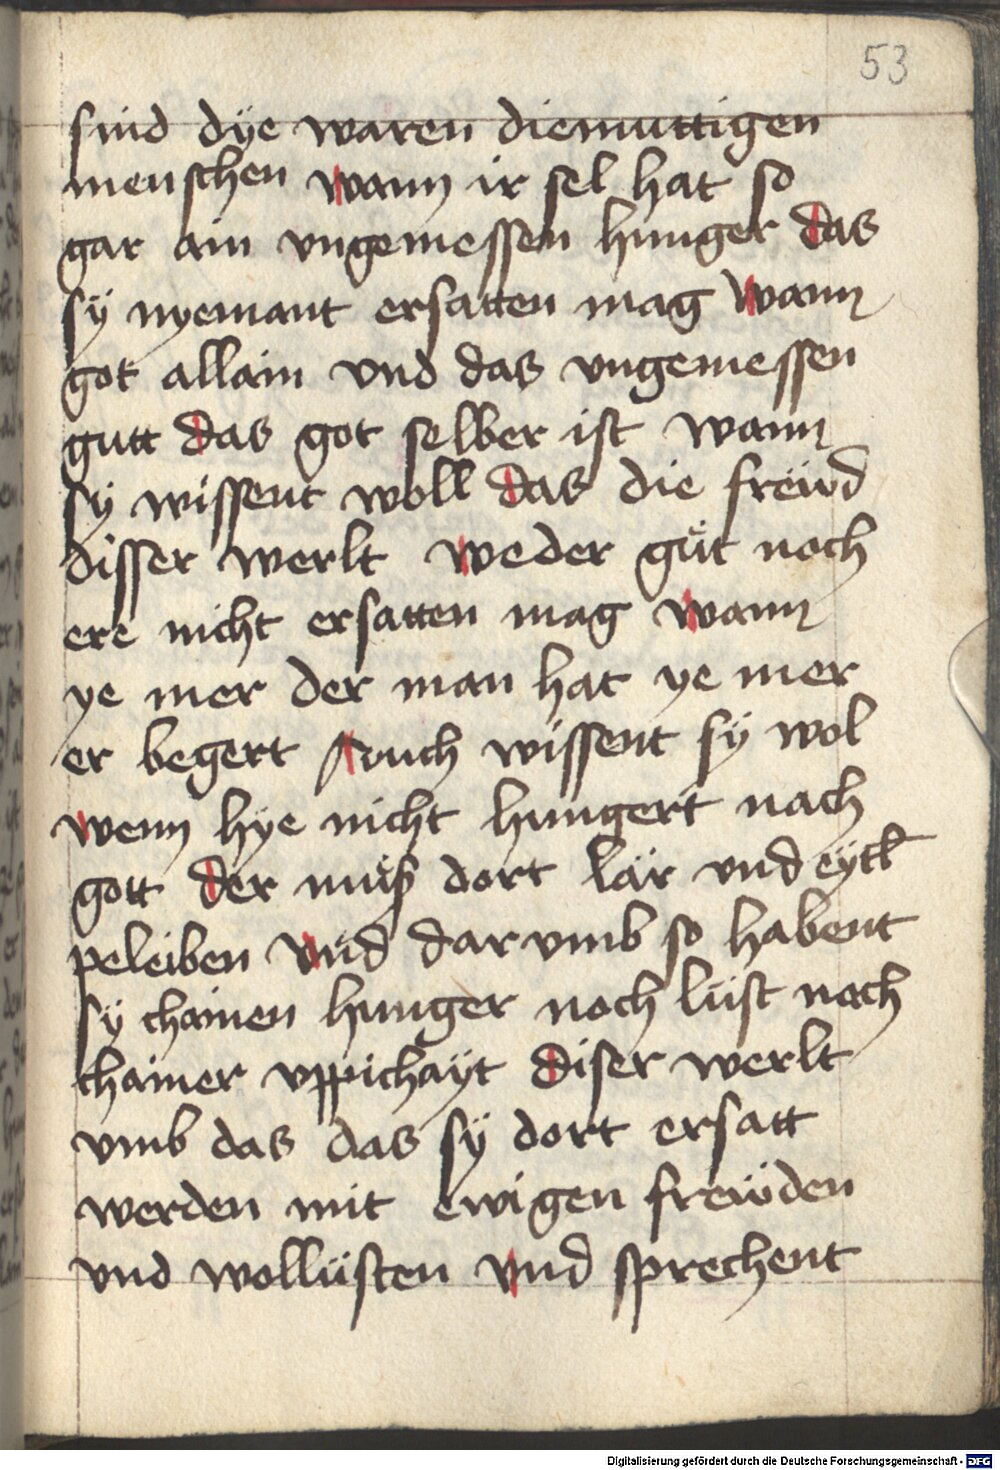 53
sind dÿe waren diemuttigen
menschen wann ir sel hat so
gar ain vngemessen hunger das
sÿ nyemant ersatten mag wann
got allain vnd das vngemessen
gutt das got selber ist wann
sÿ wissent woll das die freẅd
disser werlt weder gůt noch
ere nicht ersatten mag wann
ye mer der man hat ye mer
er begert Auch wissent sÿ wol
wenn hye nicht hungert nach
gott der můß dort lär vnd eÿtl
peleiben vnd dar vmb so habent
sÿ chainen hunger noch lust nach
chainer vppichaÿt diser werlt
vmb das das sÿ dort ersatt
werden mit ewigen freẅden
vnd wollüsten vnd sprechent
Digitalisierung gefördert durch die Deutsche Forschungsgemeinschaft - DFG